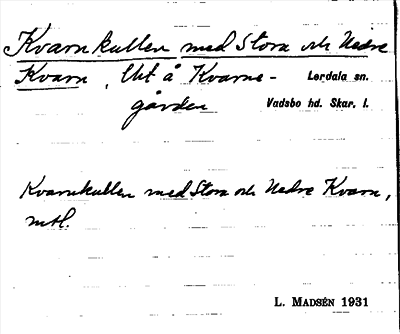 Kvarnkullen med Stora och Nedre
Kvarn, Ust å Kvarne-
Lerdala sn.
gården
Vadsbo hd. Skar. l.
Kvarnkullen med Stora och Nedre Kvarn,
mtl.
L. MADSÉN 1931